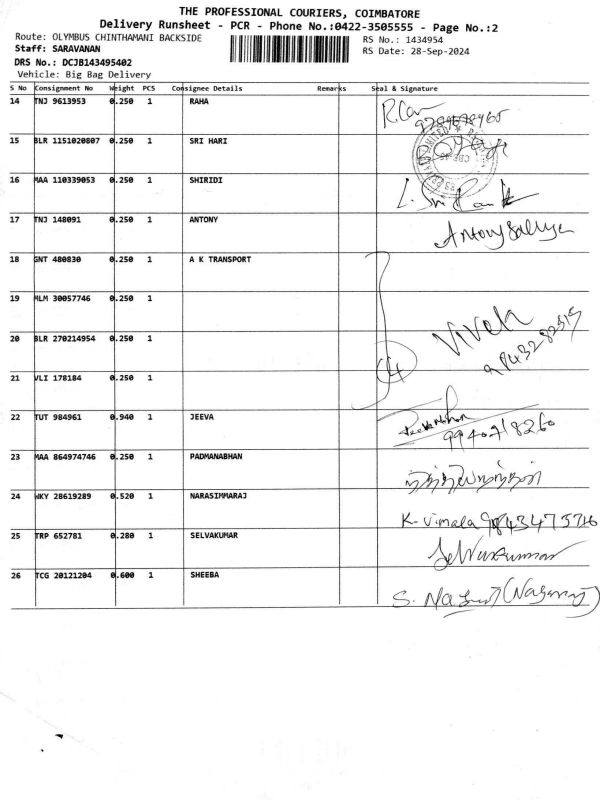 THE PROFESSIONAL COURIERS, COIMBATORE
Delivery Runsheet - PCR - Phone No.:0422-3505555 - Page No.:2
Route: OLYMBUS CHINTHAMANI BACKSIDE
RS No.: 1434954
Staff: SARAVANAN
RS Date: 28-Sep-2024
DRS No.: DCJB143495402
Vehicle: Big Bag Delivery
S No Consignment No Weight PCS Consignee Details Remarks Seal & Signature
14 TNJ 9613953 0.250 1 RAHA
15 BLR 1151020807 0.250 1 SRI HARI
16 MAA 110339053 0.250 1 SHIRIDI
17 TNJ 148091 0.250 1 ANTONY
18 GNT 480830 0.250 1 A K TRANSPORT
19 MLM 30057746 0.250 1
20 BLR 270214954 0.250 1 Vivek
21 VLI 178184 0.250 1
22 TUT 984961 0.940 1 JEEVA
9940718260
23 MAA 864974746 0.250 1 PADMANABHAN
24 WKY 28619289 0.520 1 NARASIMMARAJ K. Vimala 9843475716
25 TRP 652781 0.280 1 SELVAKUMAR Selvakumar
26 TCG 20121204 0.600 1 SHEEBA